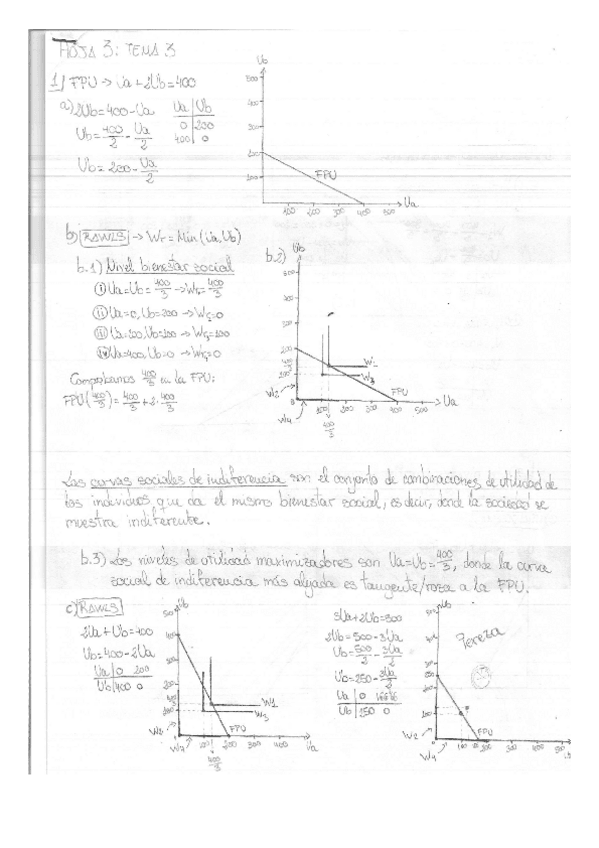 HOJA 3: TEMA 3
1/ FPU → Ua + 2Ub = 400
a) 2Ub = 400 - Ua
Ua | Ub
Ub = 400/2 - Ua/2
0 | 200
400 | 0
Ub = 200 - Ua/2
Ub
500
400
300
200
100
FPU
100 200 300 400 500 Ua
b) RAWLS → Wr = Min (Ua, Ub)
b.1) Nivel bienestar social
i) Ua = Ub = 400/3 → Wr = 400/3
ii) Ua = 0, Ub = 200 → W = 0
iii) Ua = 200, Ub = 100 → W = 100
iv) Ua = 400, Ub = 0 → W = 0
Comprobamos 400/3 en la FPU:
FPU (400/3) = 400/3 + 2 · 400/3
b.2)
Ub
500
400
300
200
W1
W3
W2
W4
FPU
100 200 300 400 500 Ua
400/3
Las curvas sociales de indiferencia son el conjunto de combinaciones de utilidad de
los individuos que da el mismo bienestar social, es decir, donde la sociedad se
muestra indiferente.
b.3) Los niveles de utilidad maximizadores son Ua = Ub = 400/3, donde la curva
social de indiferencia más alejada es tangente/roza a la FPU.
c) RAWLS
2Ua + Ub = 400
Ub = 400 - 2Ua
Ua | 0 200
Ub | 400 0
Ub
500
400
300
200
W1
W3
W2
W4
FPU
100 200 300 400 Ua
400/3
3Ua + 2Ub = 500
2Ub = 500 - 3Ua
Ub = 500/2 - 3Ua/2
Ub = 250 - 3Ua/2
Ua | 0 166'66
Ub | 250 0
Pereza
FPU
W2
W4